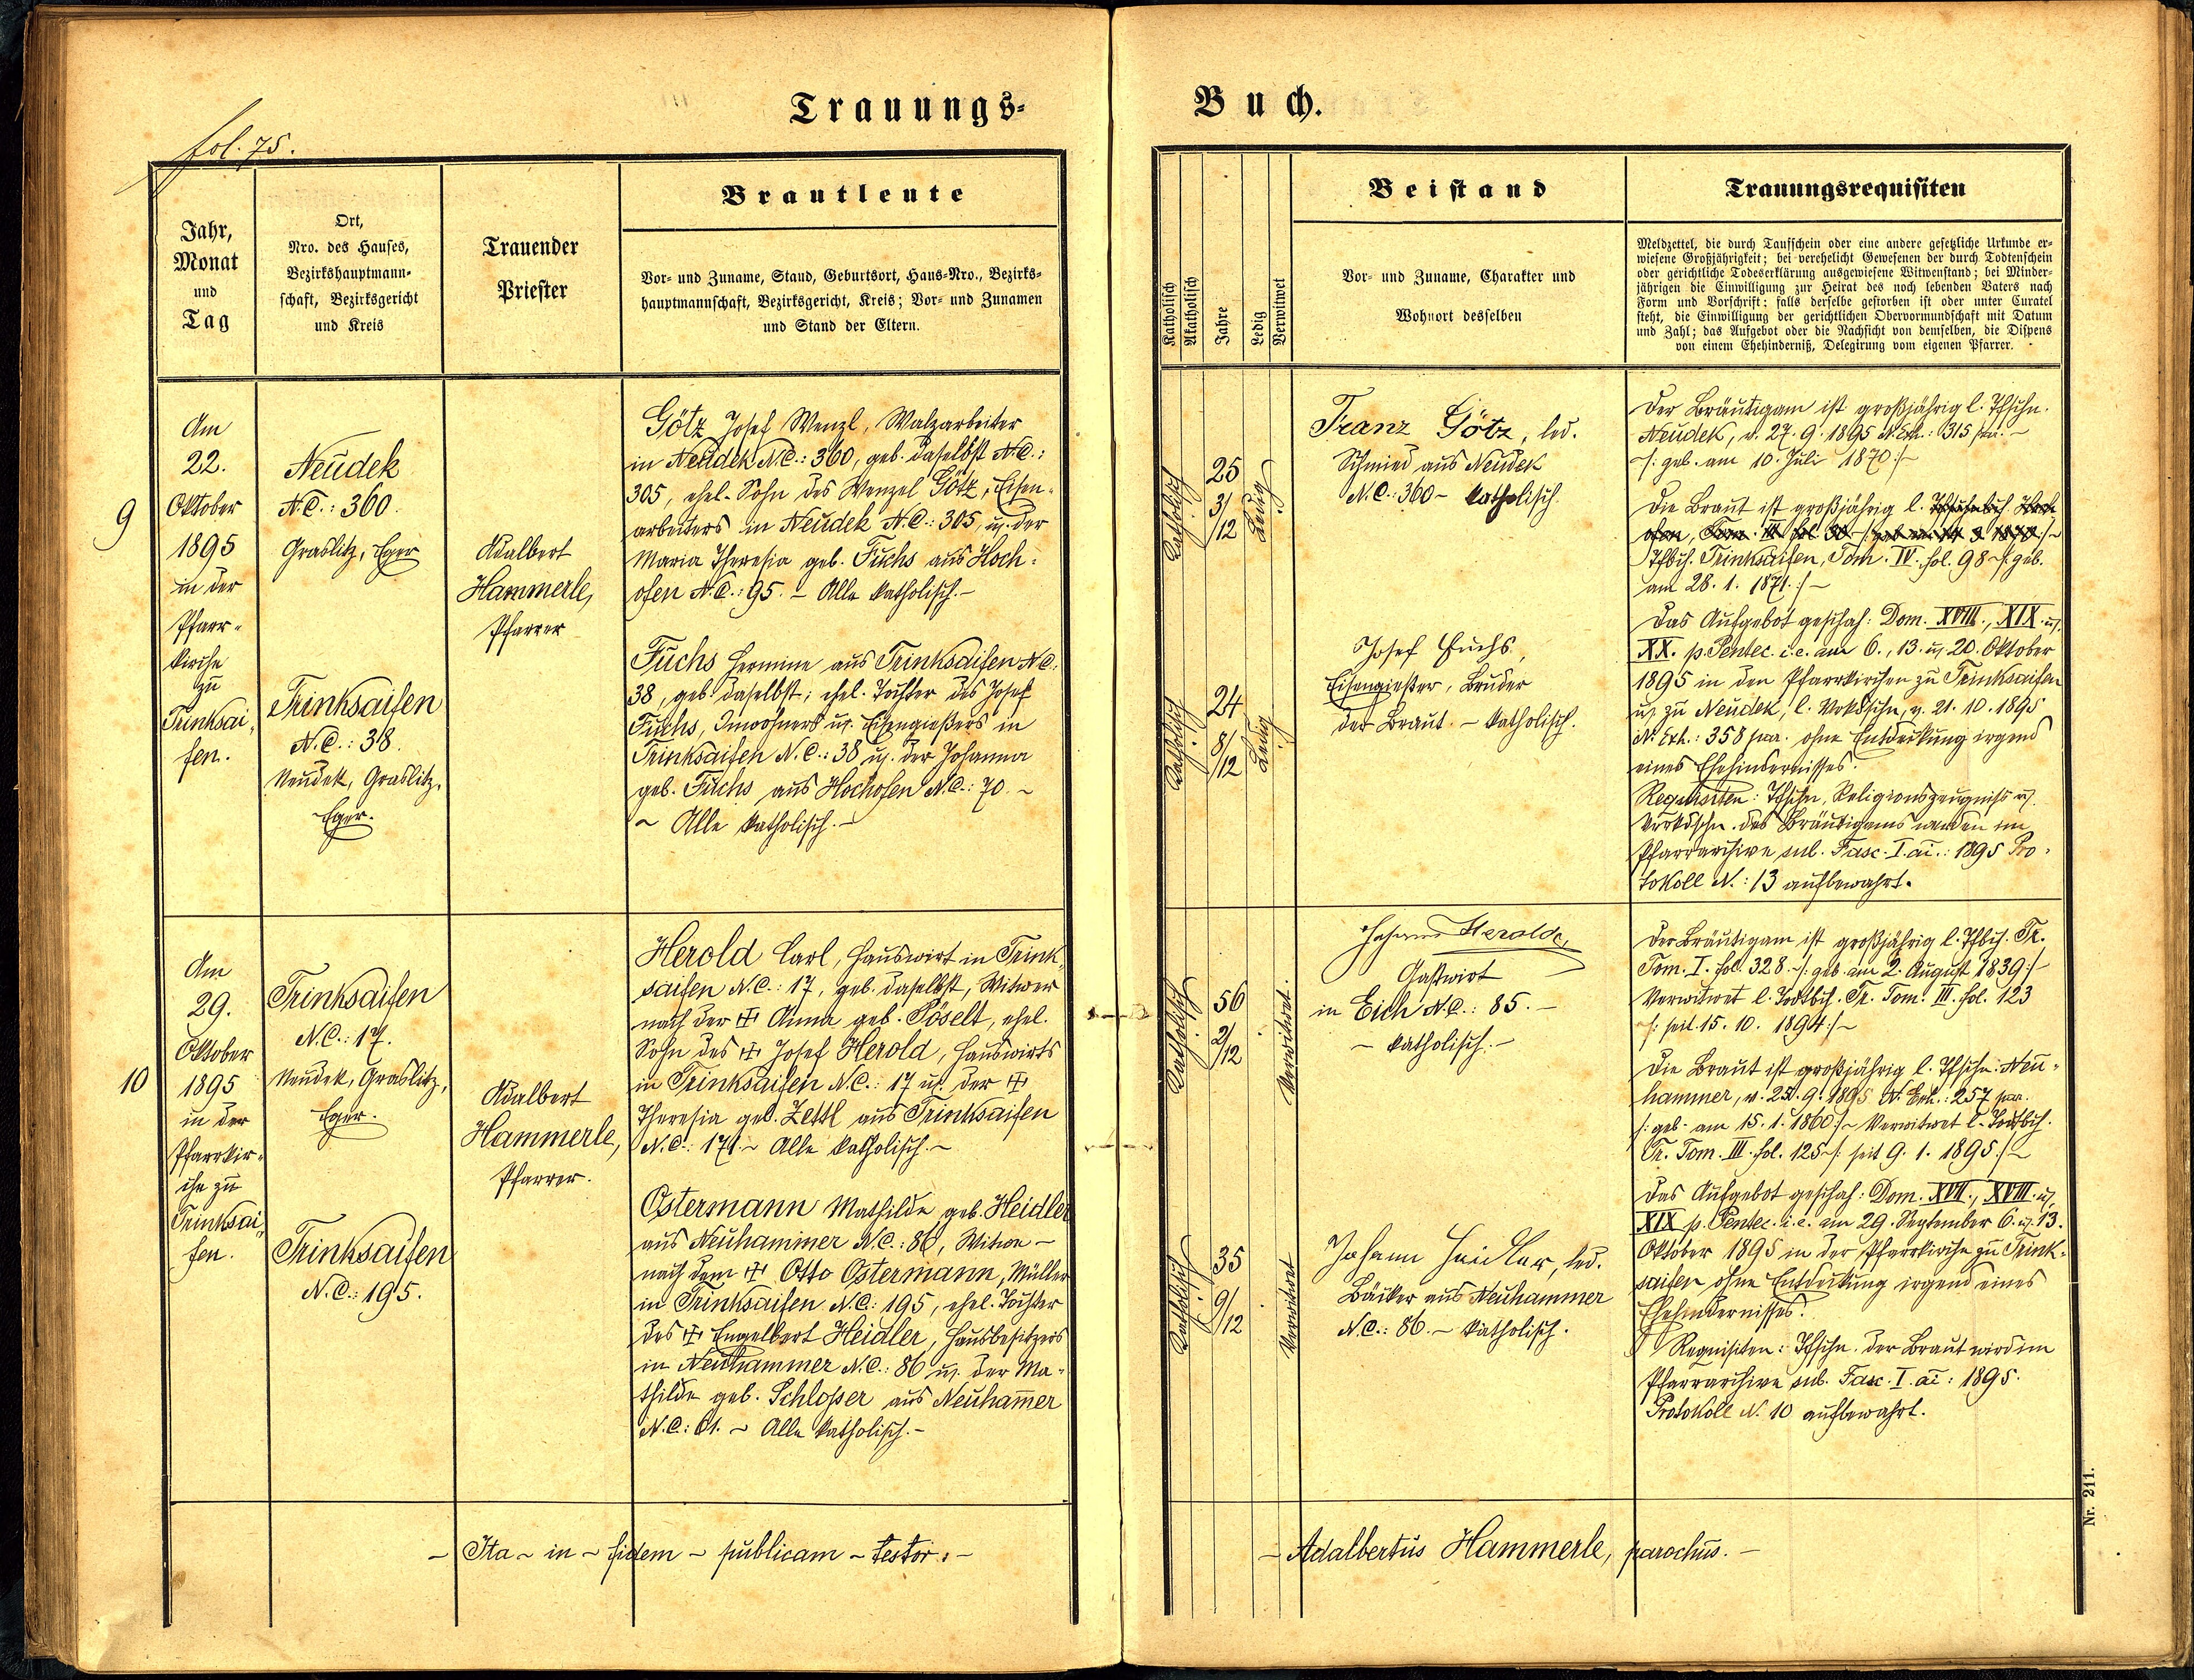 Trauungs-
Buch.
fol. 75.
Jahr,
Monat
und
Tag
Ort,
Nro. des Hauses,
Bezirkshauptmann-
schaft, Bezirksgericht
und Kreis
Trauender
Priester
Brautleute
Vor- und Zuname, Stand, Geburtsort, Haus-Nro., Bezirks-
hauptmannschaft, Bezirksgericht, Kreis; Vor- und Zunamen
und Stand der Eltern.
Katholisch
Akatholisch
Jahre
Ledig
Verwitwet
Beistand
Vor- und Zuname, Charakter und
Wohnort desselben
Trauungsrequisiten
Meldzettel, die durch Taufschein oder eine andere gesetzliche Urkunde er-
wiesene Großjährigkeit; bei verehelicht Gewesenen der durch Todtenschein
oder gerichtliche Todeserklärung ausgewiesene Witwenstand; bei Minder-
jährigen die Einwilligung zur Heirat des noch lebenden Vaters nach
Form und Vorschrift; falls derselbe gestorben ist oder unter Curatel
steht, die Einwilligung der gerichtlichen Obervormundschaft mit Datum
und Zahl; das Aufgebot oder die Nachsicht von demselben, die Dispens
von einem Ehehinderniß, Delegirung vom eigenen Pfarrer.
9
Am
22.
Oktober
1895
in der
Pfarr-
kirche
zu
Trinksai-
fen.
Neudek
N.C.: 360.
Graslitz, Eger
Trinksaifen
N.C.: 38.
Neudek, Graslitz,
Eger.
Adalbert
Hammerle,
Pfarrer
Götz Josef Wenzl, Walzarbeiter
in Neudek N.C.: 360, geb. daselbst N.C.:
305, ehel. Sohn des Wenzel Götz, Eisen-
arbeiters in Neudek N.C.: 305, u. der
Maria Theresia geb. Fuchs aus Hoch-
ofen N.C.: 95. – Alle katholisch. –
Fuchs Hermine aus Trinksaifen N.C.
38, geb. daselbst; ehel. Tochter des Josef
Fuchs, Inwohners u. Eisengießers in
Trinksaifen N.C.: 38 u. der Johanna
geb. Fuchs aus Hochofen N.C.: 70. ~
~ Alle katholisch. –
Katholisch
25
3/12
Ledig
Katholisch
24
8/12
Ledig
Franz Götz, led.
Schmied aus Neudek
N.C.: 360 – katholisch.
Josef Fuchs,
Eisengießer, Bruder
der Braut. – katholisch.
Der Bräutigam ist großjährig l. Tfschn.
Neudek, v. 27.9.1895 N. Exh.: 315 par. –
/: geb. am 10. Juli 1870 :/
Die Braut ist großjährig l.
Tfbch. Trinksaifen, Tom. IV. fol. 98 ~ /: geb.
am 28. 1. 1871. :/ –
Das Aufgebot geschah: Dom. XVIII., XIX. u.
XX. p. Pentec. i.e. am 6., 13. u. 20. Oktober
1895 in den Pfarrkirchen zu Trinksaifen
u. zu Neudek, l. Vrkdschn. v. 21.10.1895
N. Exh.: 358 par. ohne Entdeckung irgend
eines Ehehindernisses.
Requisiten: Tfschn., Religionszeugniß u.
Verkdschn. des Bräutigams werden im
Pfarrarchive sub. Fasc. I. ai.: 1895 Pro-
tokoll N.: 13 aufbewahrt.
10
Am
29.
Oktober
1895
in der
Pfarrkir-
che zu
Trinksai-
fen.
Trinksaifen
N.C.: 17.
Neudek, Graslitz,
Eger.
Trinksaifen
N.C.: 195.
Adalbert
Hammerle,
Pfarrer.
Herold Carl, Hauswirt in Trink-
saifen N.C.: 17, geb. daselbst, Witwer
nach der ✠ Anna geb. Pöselt, ehel.
Sohn des ✠ Josef Herold, Hauswirts
in Trinksaifen N.C.: 17 u. der ✠
Theresia geb. Zettl aus Trinksaifen
N.C.: 171. ~ Alle katholisch. ~
Ostermann Mathilde geb. Heidler
aus Neuhammer N.C.: 86, Witwe –
nach dem ✠ Otto Ostermann, Müller
in Trinksaifen N.C.: 195, ehel. Tochter
des ✠ Engelbert Heidler, Hausbesitzers
in Neuhammer N.C.: 86 u. der Ma-
thilde geb. Schlosser aus Neuham̄er
N.C.: 61. ~ Alle katholisch. –
Katholisch
56
2/12
Verwitwet.
Katholisch
35
9/12
Verwitwet
Johann Herold,
Gastwirt
in Eich N.C.: 85. –
– katholisch. –
Johann Heidler, led.
Bäcker aus Neuhammer
N.C.: 86. – katholisch.
Der Bräutigam ist großjährig l. Tfbch. Tr.
Tom. I. fol. 328. ~ /: geb. am 2. August 1839 :/
Verwitwet l. Todtbch. Tr. Tom. III. fol. 123
/: seit 15. 10. 1894 :/ ~
Die Braut ist großjährig l. Tfschn: Neu-
hammer, v. 25.9.1895 N. Exh.: 257 par.
/: geb. am 15. 1. 1860 :/ ~ Verwitwet l. Todtbch.
Tr. Tom. III. fol. 125 ~ /: seit 9. 1. 1895 :/ ~
Das Aufgebot geschah: Dom. XVII., XVIII. u.
XIX p. Pentec. i.e. am 29. September 6. u. 13.
Oktober 1895 in der Pfarrkirche zu Trink-
saifen ohne Entdeckung irgend eines
Ehehindernisses.
Requisiten: Tfschn. der Braut wird im
Pfarrarchive sub. Fasc. I. ai: 1895.
Protokoll N. 10 aufbewahrt.
– Ita ~ in ~ fidem ~ publicam ~ testor. –
– Adalbertus Hammerle, parochus. –
Nr. 211.